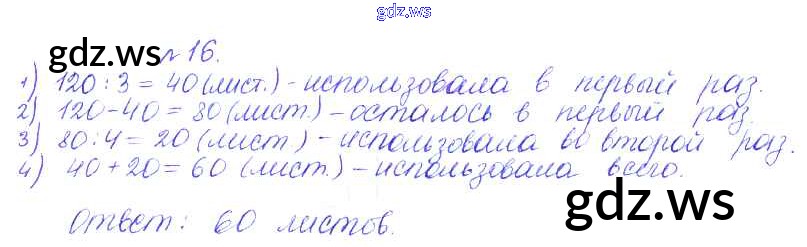 gdz.ws
gdz.ws
№16.
1) 120 : 3 = 40 (лист.) - использовала в первый раз.
2) 120-40 = 80 (лист.) - осталось в первый раз.
3) 80 : 4 = 20 (лист.) - использовала во второй раз.
4) 40 + 20 = 60 (лист.) - использовала всего.
Ответ: 60 листов.
gdz.ws